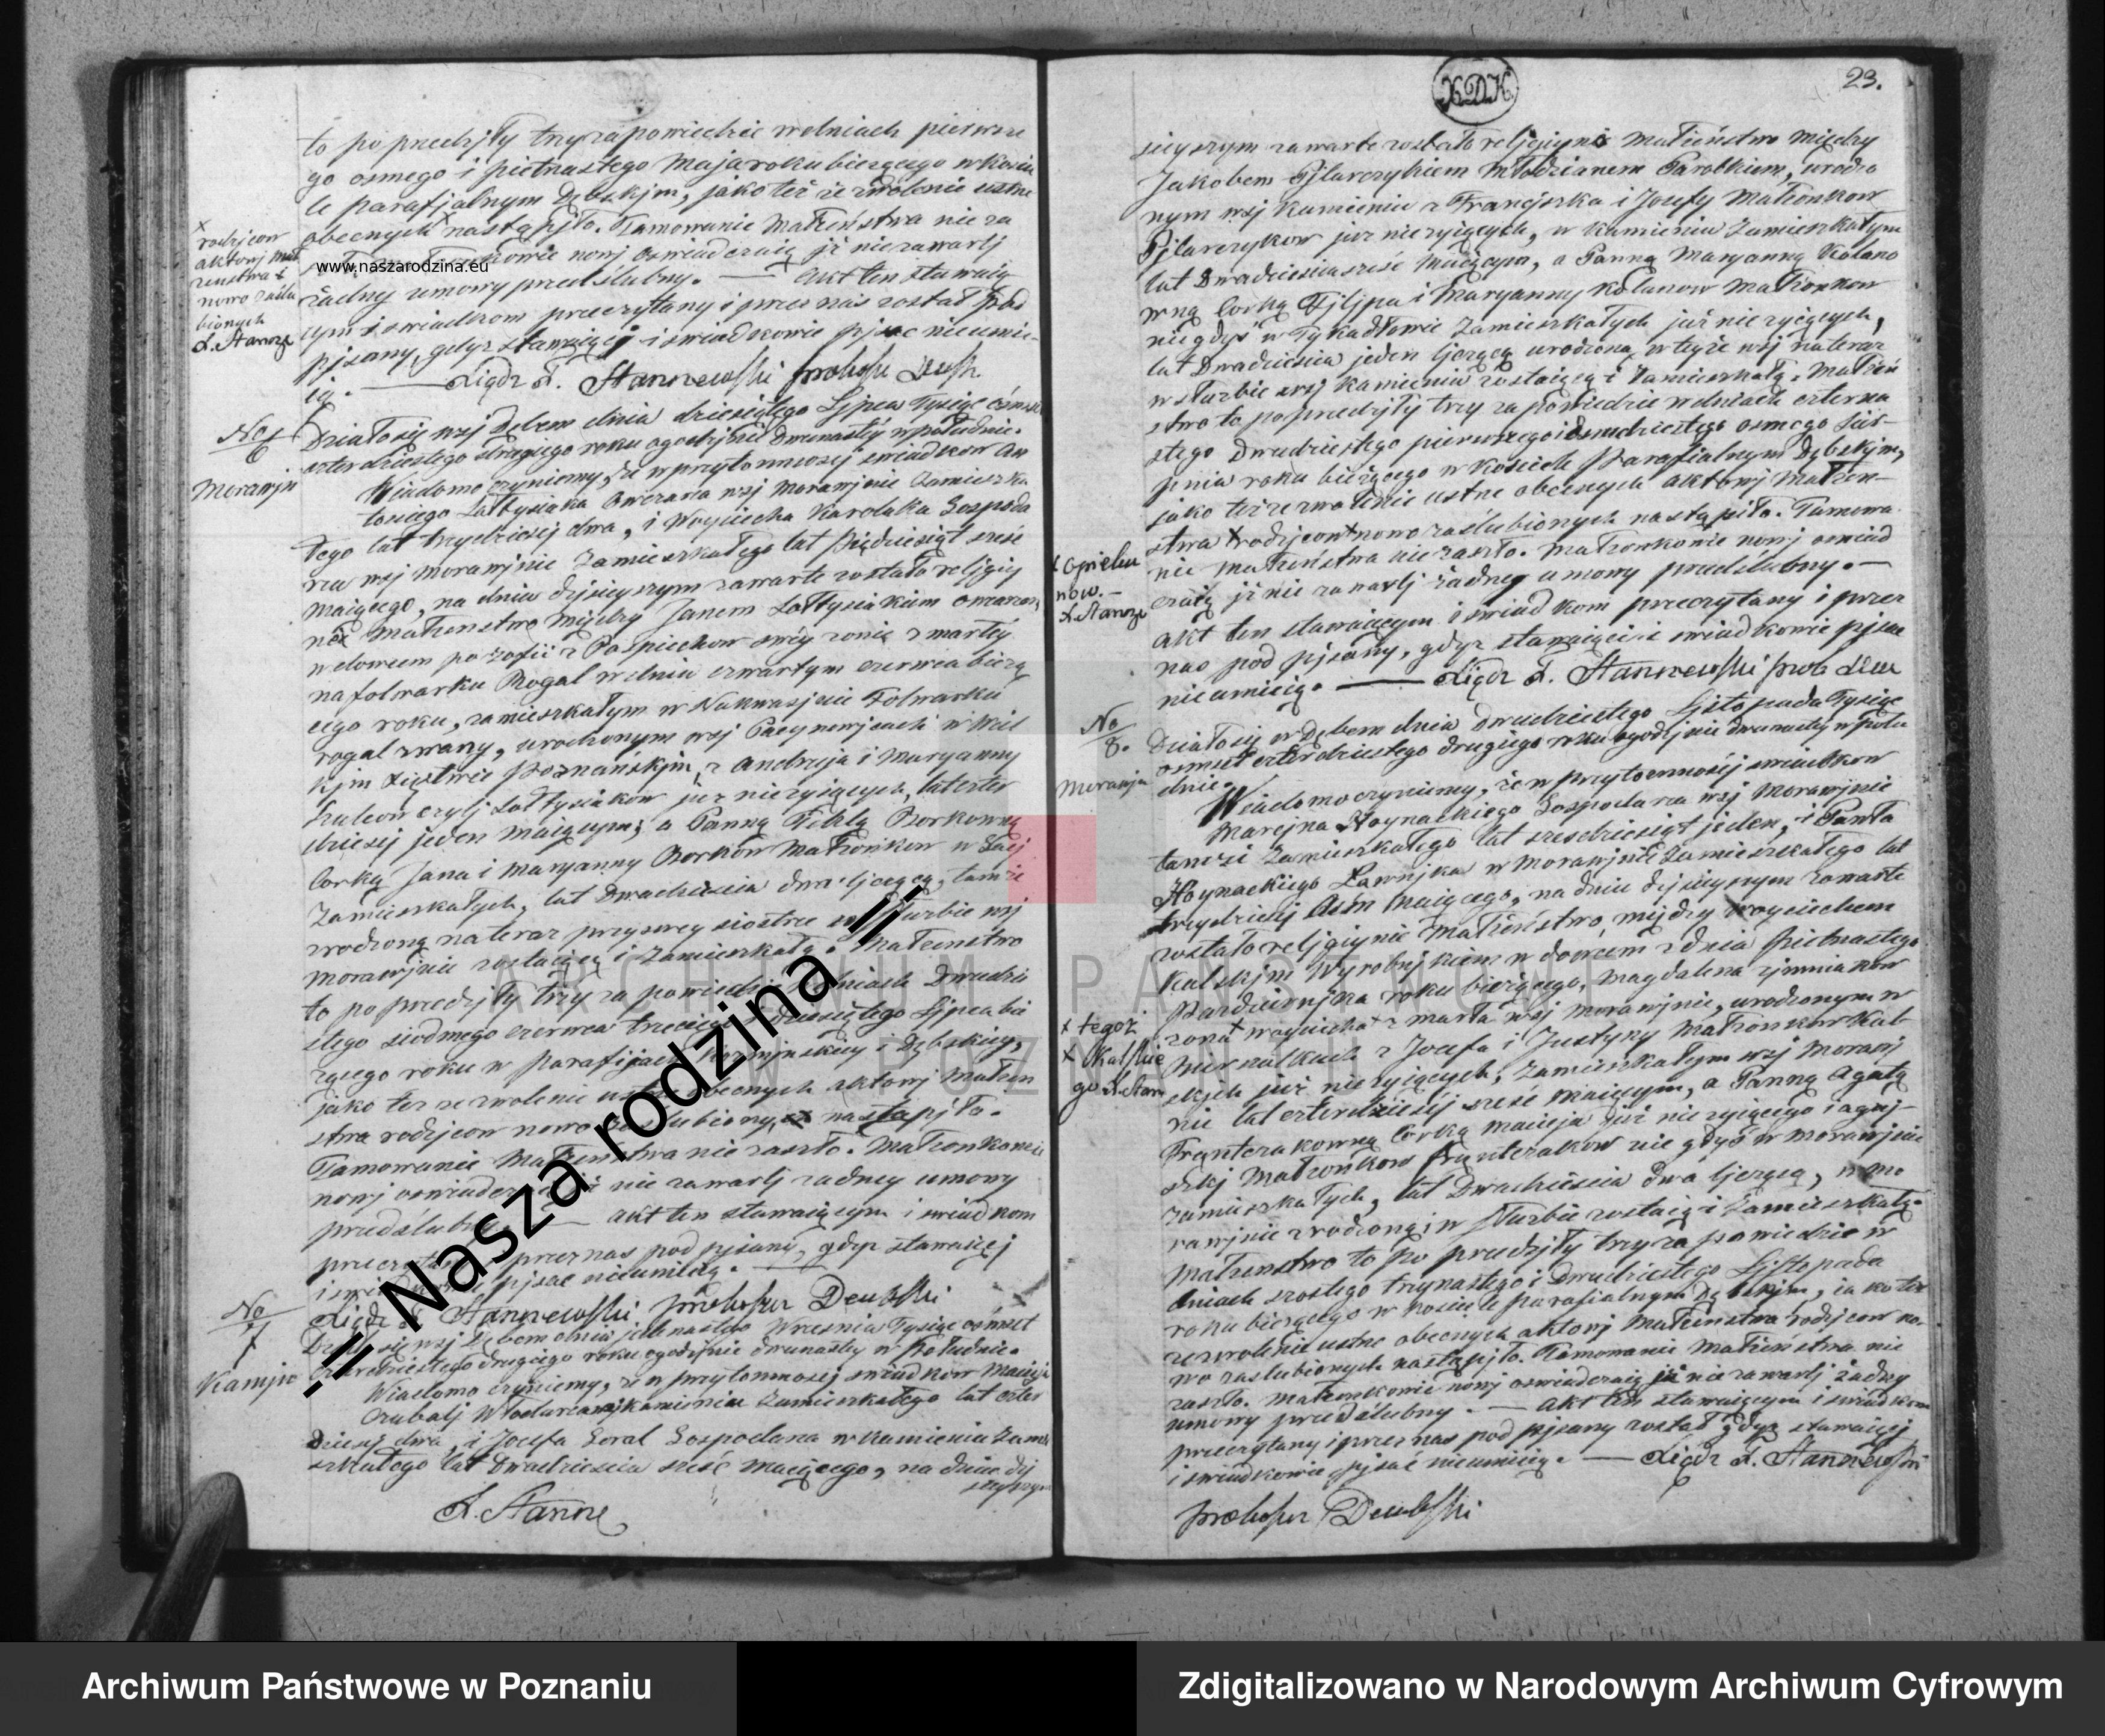 to po przedziły trzy zapowiedzie w dniach pierwsze
go osmego i piętnastego Maja roku bieżącego w kościo
le parafjalnym Dębskjm, jako też zezwolenie ustne
obecnych x nastąpjło. Tamowanie Małżeństwa nie za
nowj oswiadczaią jż nie zawarlj
żadney umowy przedslubny. — Akt ten stawaią
cym i swiadkom przeczytany i przez nas został pod
pjsany, gdyż stawaiącj i swiadkowie pjsac nieumie-
ią. — Xiądz A. Stanszewski proboszcz
x rodzjcow
aktowj Mał
zenstwa i
nowo zaślu
bionych
www.naszarodzina.eu
No
6
Morawjn
Działo sję wsj Dębem dnia dziesiątego Ljpca Tysiąc osmset
czterdziestego drugiego roku o godzjnie dwunastey w południe.
Wiadomo czynjemy, że w przytomnoscj swiadkow An
toniego Łattysiaka Owczarza wsj Morawjnie zamieszka
łego lat trzydziescj dwa, i Woyciecha Karolaka Gospoda
rza wsj Morawjnie zamieszkałego lat pięćdziesiąt sześć
maiącego, na dniu dzjsieyszym zawarte zostało religiy
nie Małzenstwo mjędzy Janem Łattysiakiem owczarzem
wdowcem po Zofii z Pospiechow swéy żonie zmarłéy
na folwarku Rogal w dniu czwartym czerwca bieżą
cego roku, zamieszkałym w Nakwasjnie Folwarku
rogal zwany, urodzonym wsj w Wiel
kjm Xięstwie Poznańskjm, z Andrzeja i Maryanny
czylj Łattysiaków już nieżyiących, lat czter
dziescj jeden maiącym; a Panną Teklą Borkowną
Corką Jana i Maryanny Borków Małżonkow
Zamieszkałych, lat Dwadziescia dwa ljczącą, tamże
zrodzoną na teraz przy swey siostrze w służbie wsj
Morawjnie zostaiącą i zamieszkałą. Małzenstwo
to po przedzjły trzy zapowiedzie w dniach Dwudzie
stego siodmego czerwca trzeciego i dziesiątego Ljpca bie
żącego roku w parafijach i Dębskiey,
jako też zezwolenie ustne obecnych aktowj Małżen
stwa rodzjcow nowo zaslubiony nastąpjło.
Tamowanie Małżeństwa nie zaszło. Małżonkowie
nowj oswiadczaią jż nie zawarlj żadney umowy
przedślubny. — Akt ten stawaiącym i swiadkom
przeczytany przez nas pod pjsany, gdyż stawaiącj
i swiadkowie pjsac nieumieią. —
Xiądz A. Stanszewski proboszcz Dembski
No
7
Kamjen
Działo się wsj Dębem dnia jedenastego Wrzesnia Tysiąc osmset
czterdziestego drugiego roku o godzjnie dwunastey w Południe.
Wiadomo czynjemy, że w przytomnoscj swiadkow Macieja
Czubalj Włodarza wsj Kamieniu zamieszkałego lat czter
dziescj dwa, i Jozefa Goral Gospodarza w Kamieniu zamie
szkałego lat Dwadziescia szesc maiącego, na dniu dzj
sieyszym
A. Stansze
XDK
23.
sieyszym zawarte zostało religiynie Małżeństwo między
Jakobem Pjlarczykiem Młodzianem Parobkiem, urodzo
nym wsj Kamieniu z Franciszka i Jozefy Małżonkow
Pjlarczykow już nieżyiących, w Kamieniu zamieszkałym
lat Dwadziescia szesc maiącym, a Panną Maryanną Kolano
wną Corką Fjljpa i Maryanny Kolanow Małżonkow
niegdys w Tykadłowie zamieszkałych już nieżyiących,
lat Dwadziescia jeden ljczącą urodzoną w teyże wsj na teraz
w służbie wsj Kamieniu zostaiącą i zamieszkałą. Małżeń
stwo to po przedzjły trzy zapowiedzie w dniach czterna
stego Dwudziestego pierwszego i dwudziestego osmego Sier-
pnia roku bieżącego w kosciele Parafialnym Dębskjm,
jako też zezwolenie ustne obecnych aktowj Małżen-
stwa x rodzjcow x nowo zaślubionych nastąpiło. Tamowa
nie Małżeństwa nie zaszło. Małżonkowie nowj oswiad
czaią jż nie zawarlj żadney umowy przedślubny. —
Akt ten stawaiącym i swiadkom przeczytany i przez
nas pod pjsany, gdyż stawaiącj i swiadkowie pjsac
nieumieią. — Xiądz A. Stanszewski prob
x opieku
now. —
X. Stansze
No
8.
Morawjn
Działo sję w Dębem dnia dwudziestego Ljstopada Tysiąc
osmset czterdziestego drugiego roku o godzjnie dwunastey w połu
dnie.
Wiadomo czynjemy, że w przytomnoscj swiadkow
Marcjna Hoynackiego Gospodarza wsj Morawjnie
zamieszkałego lat szescdziesiąt jeden, i Panta
Hoynackiego Ławnjka w Morawjnie zamieszkałego lat
trzydziescj osm maiącego, na dniu dzjsieyszym zawarte
zostało religiynie Małżeństwo, między Woyciechem
Kalskjm Wyrobnjkiem wdowcem z dnia piętnastego
Pazdziernjka roku bieżącego, Magdalena
żona x Woyciecha x zmarła wsj Morawjnie, urodzonym w
z Jozefa i Justyny Małżonkow Kal
skjch już nieżyiących, zamieszkałym wsj Morawj
nie lat czterdziescj szesc maiącym, a Panną Agatą
Frątczakowną Corką Macieja już nieżyiącego i Agnj-
szkj Małżonkow Frątczakow nie gdyś w Morawjnie
zamieszkałych, lat Dwadziescia dwa ljczącą, w Mo
rawjnie zrodzoną, w służbie zostaią i zamieszkałą.
Małzenstwo to po przedzjły trzy zapowiedzie w
dniach szostego trzynastego i Dwudziestego Ljstopada
roku bieżącego w kosciele parafialnym Dębskjm, jako też
zezwolenie ustne obecnych aktowj Małżenstwa rodzjcow no
wo zaslubionych nastąpjło. Tamowanie Małżeństwa nie
zaszło. Małżonkowie nowj oswiadczaią jż nie zawarlj żadney
umowy przedślubny. — Akt ten stawaiącym i swiadkom
przeczytany i przez nas pod pjsany został gdyż stawaiącj
i swiadkowie pjsac nieumieią. — Xiądz A. Stanszewski
proboszcz Dembski
x tegoż
x Kalskie
go
.:: Nasza rodzina ::.
ARCHIWUM PAŃSTWOWE
W POZNANIU
Archiwum Państwowe w Poznaniu
Zdigitalizowano w Narodowym Archiwum Cyfrowym